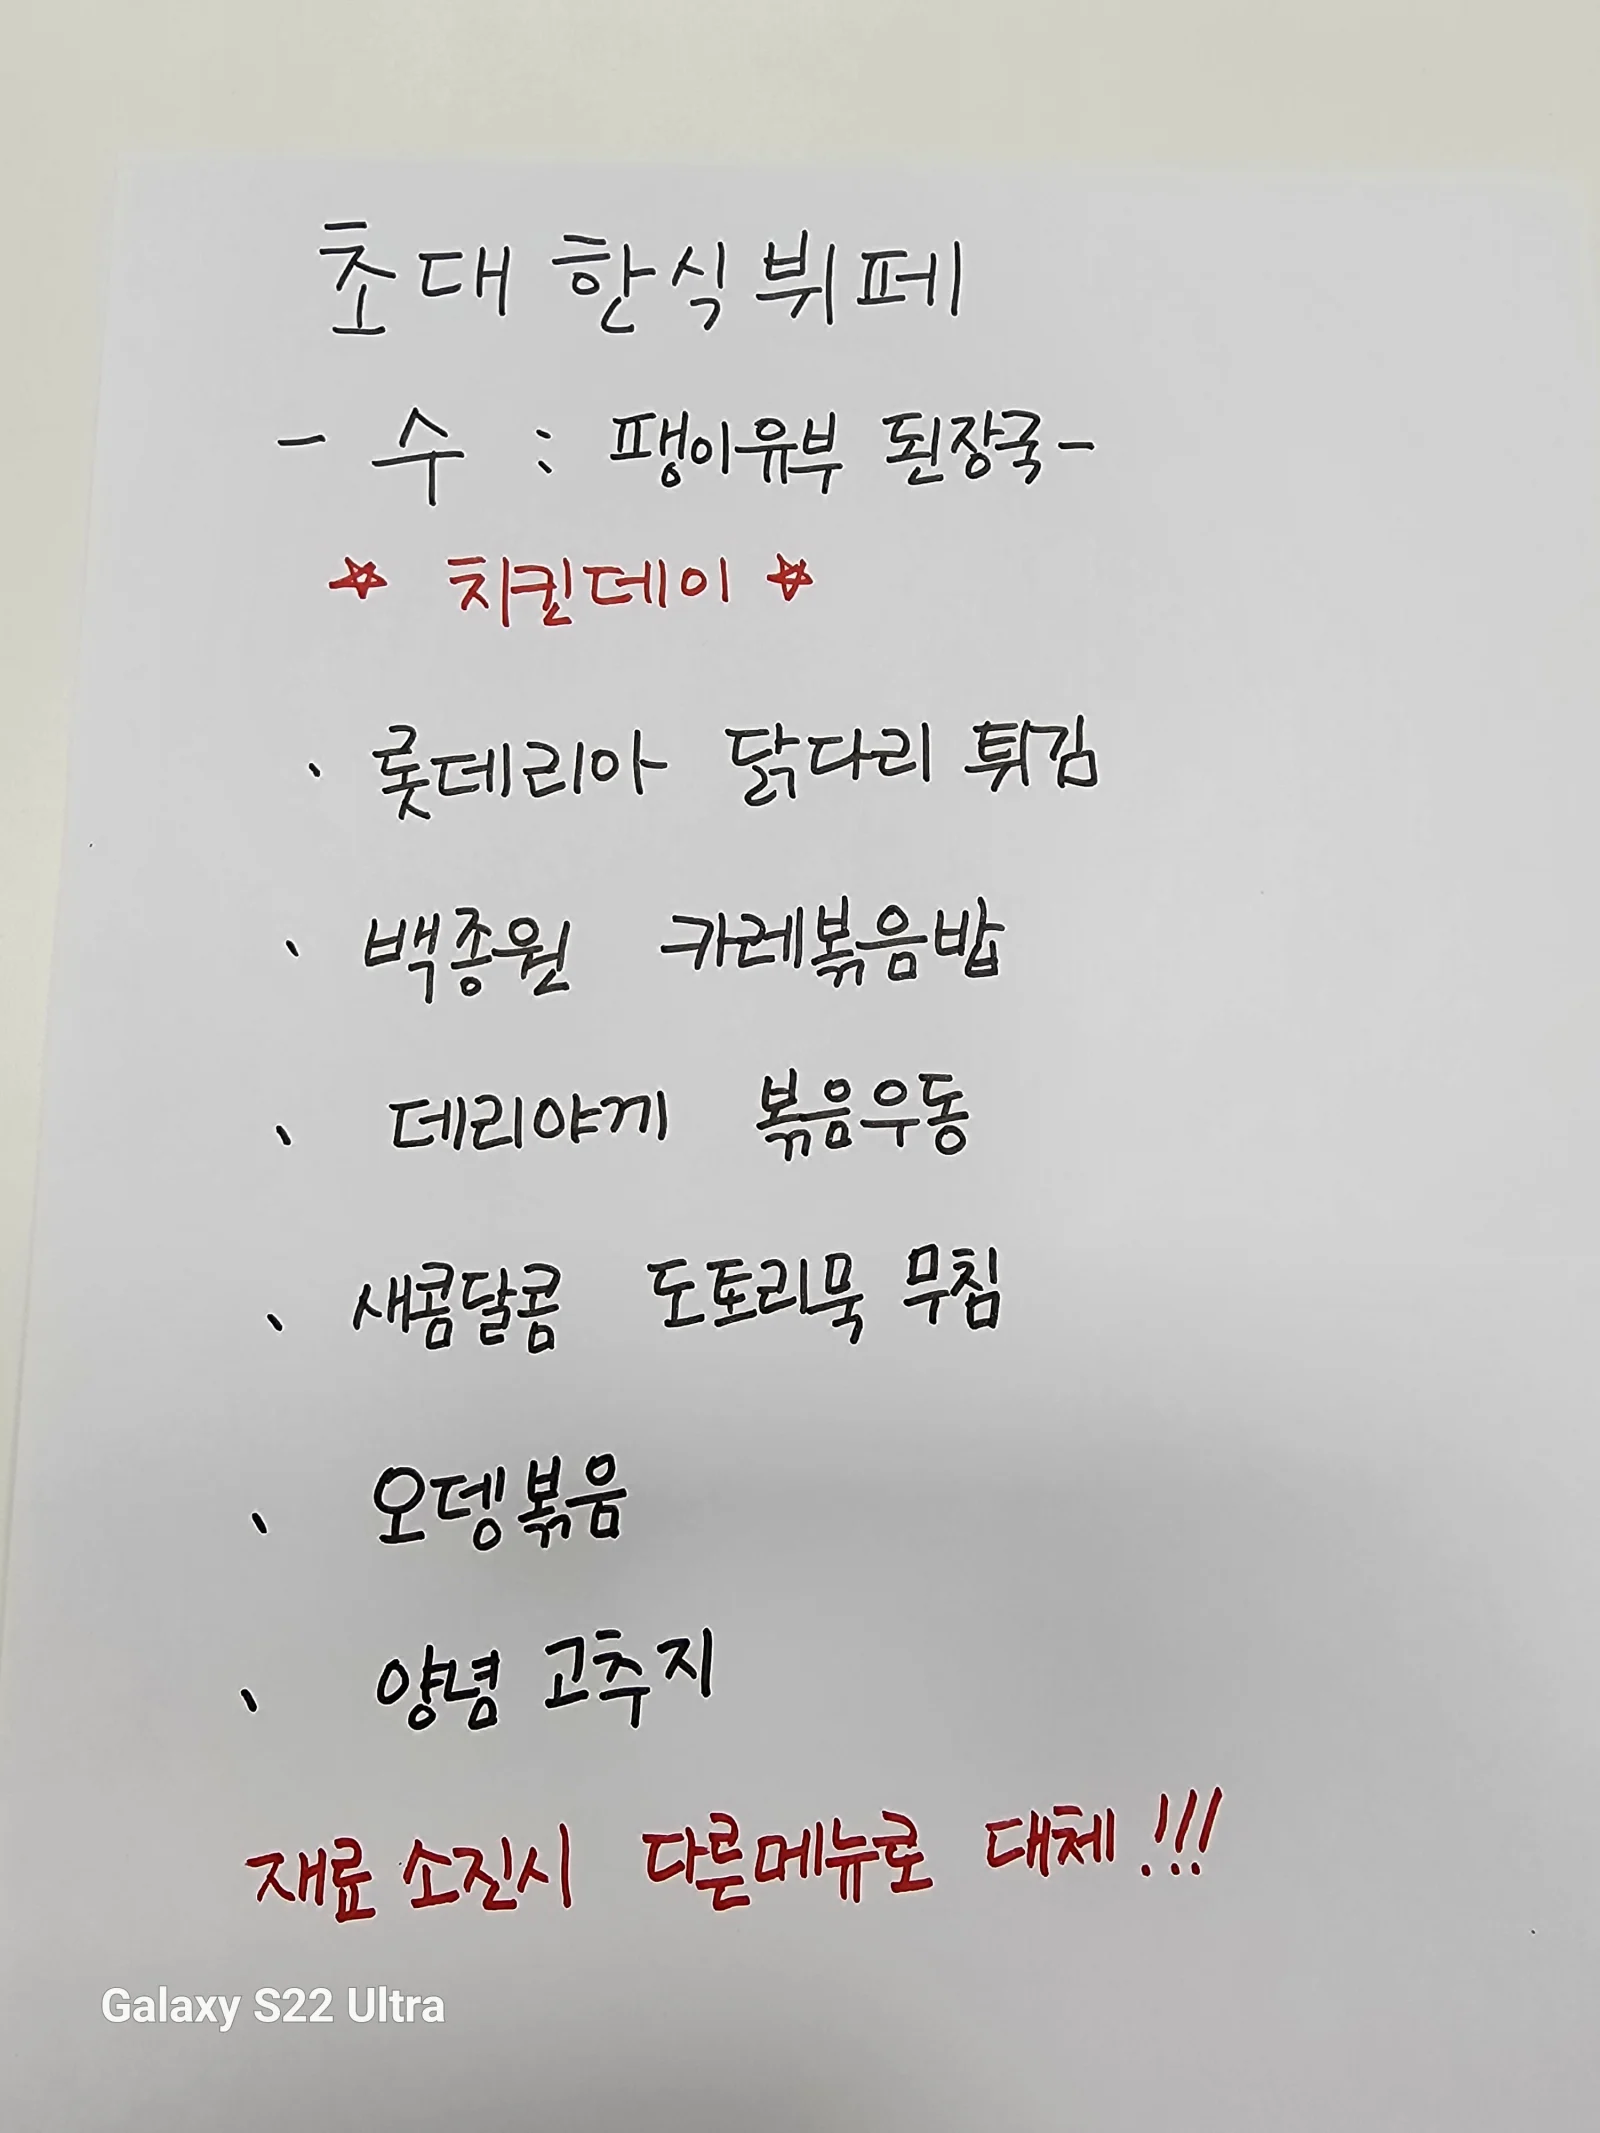 초대 한식뷔페
- 수 : 팽이유부 된장국 -
☆ 치킨데이 ☆
· 롯데리아 닭다리 튀김
· 백종원 카레볶음밥
· 데리야끼 볶음우동
· 새콤달콤 도토리묵 무침
· 오뎅볶음
· 양념 고추지
재료 소진시 다른메뉴로 대체!!!
Galaxy S22 Ultra